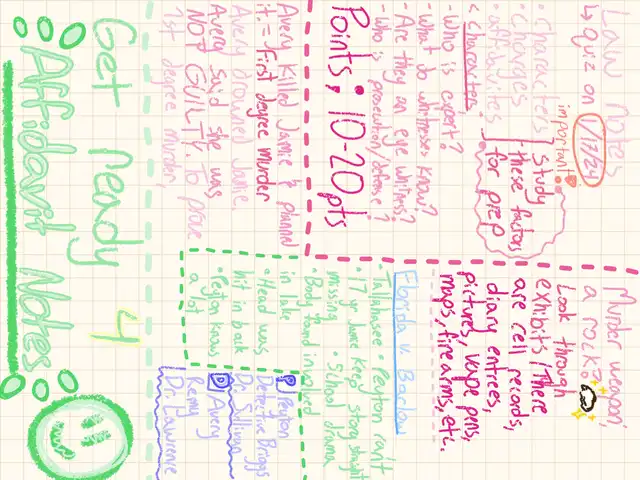 Law Notes
↳ quiz on 1/17/24
important!
• characters
• charges
• attributes
study
these factors
for prep
< characters
- who is expert?
- What do witnesses know?
- Are they an eye witness?
- who is prosecution/defense?
Points: 10-20pts
Avery killed Jamie & planned
it. = First degree murder
Avery drowned Jamie.
Avery said she was
NOT GUILTY. to prove
1st degree murder,
Murder weapon;
a rock?
Look through
exhibits/There
are cell records,
diary entrees,
pictures, vape pens,
maps, firearms, etc.
Florida v. Barlow
• Peyton rant
• 17 yr. Jamie Keep story straight
missing • School drama
• Body found involved
in lake
• Head was
hit in back
• Peyton knows
a lot
P Peyton
Detective Briggs
Dr. Sullivan
D Avery
Remy
Dr. Lawrence
Get ready 4
Affidavit Notes